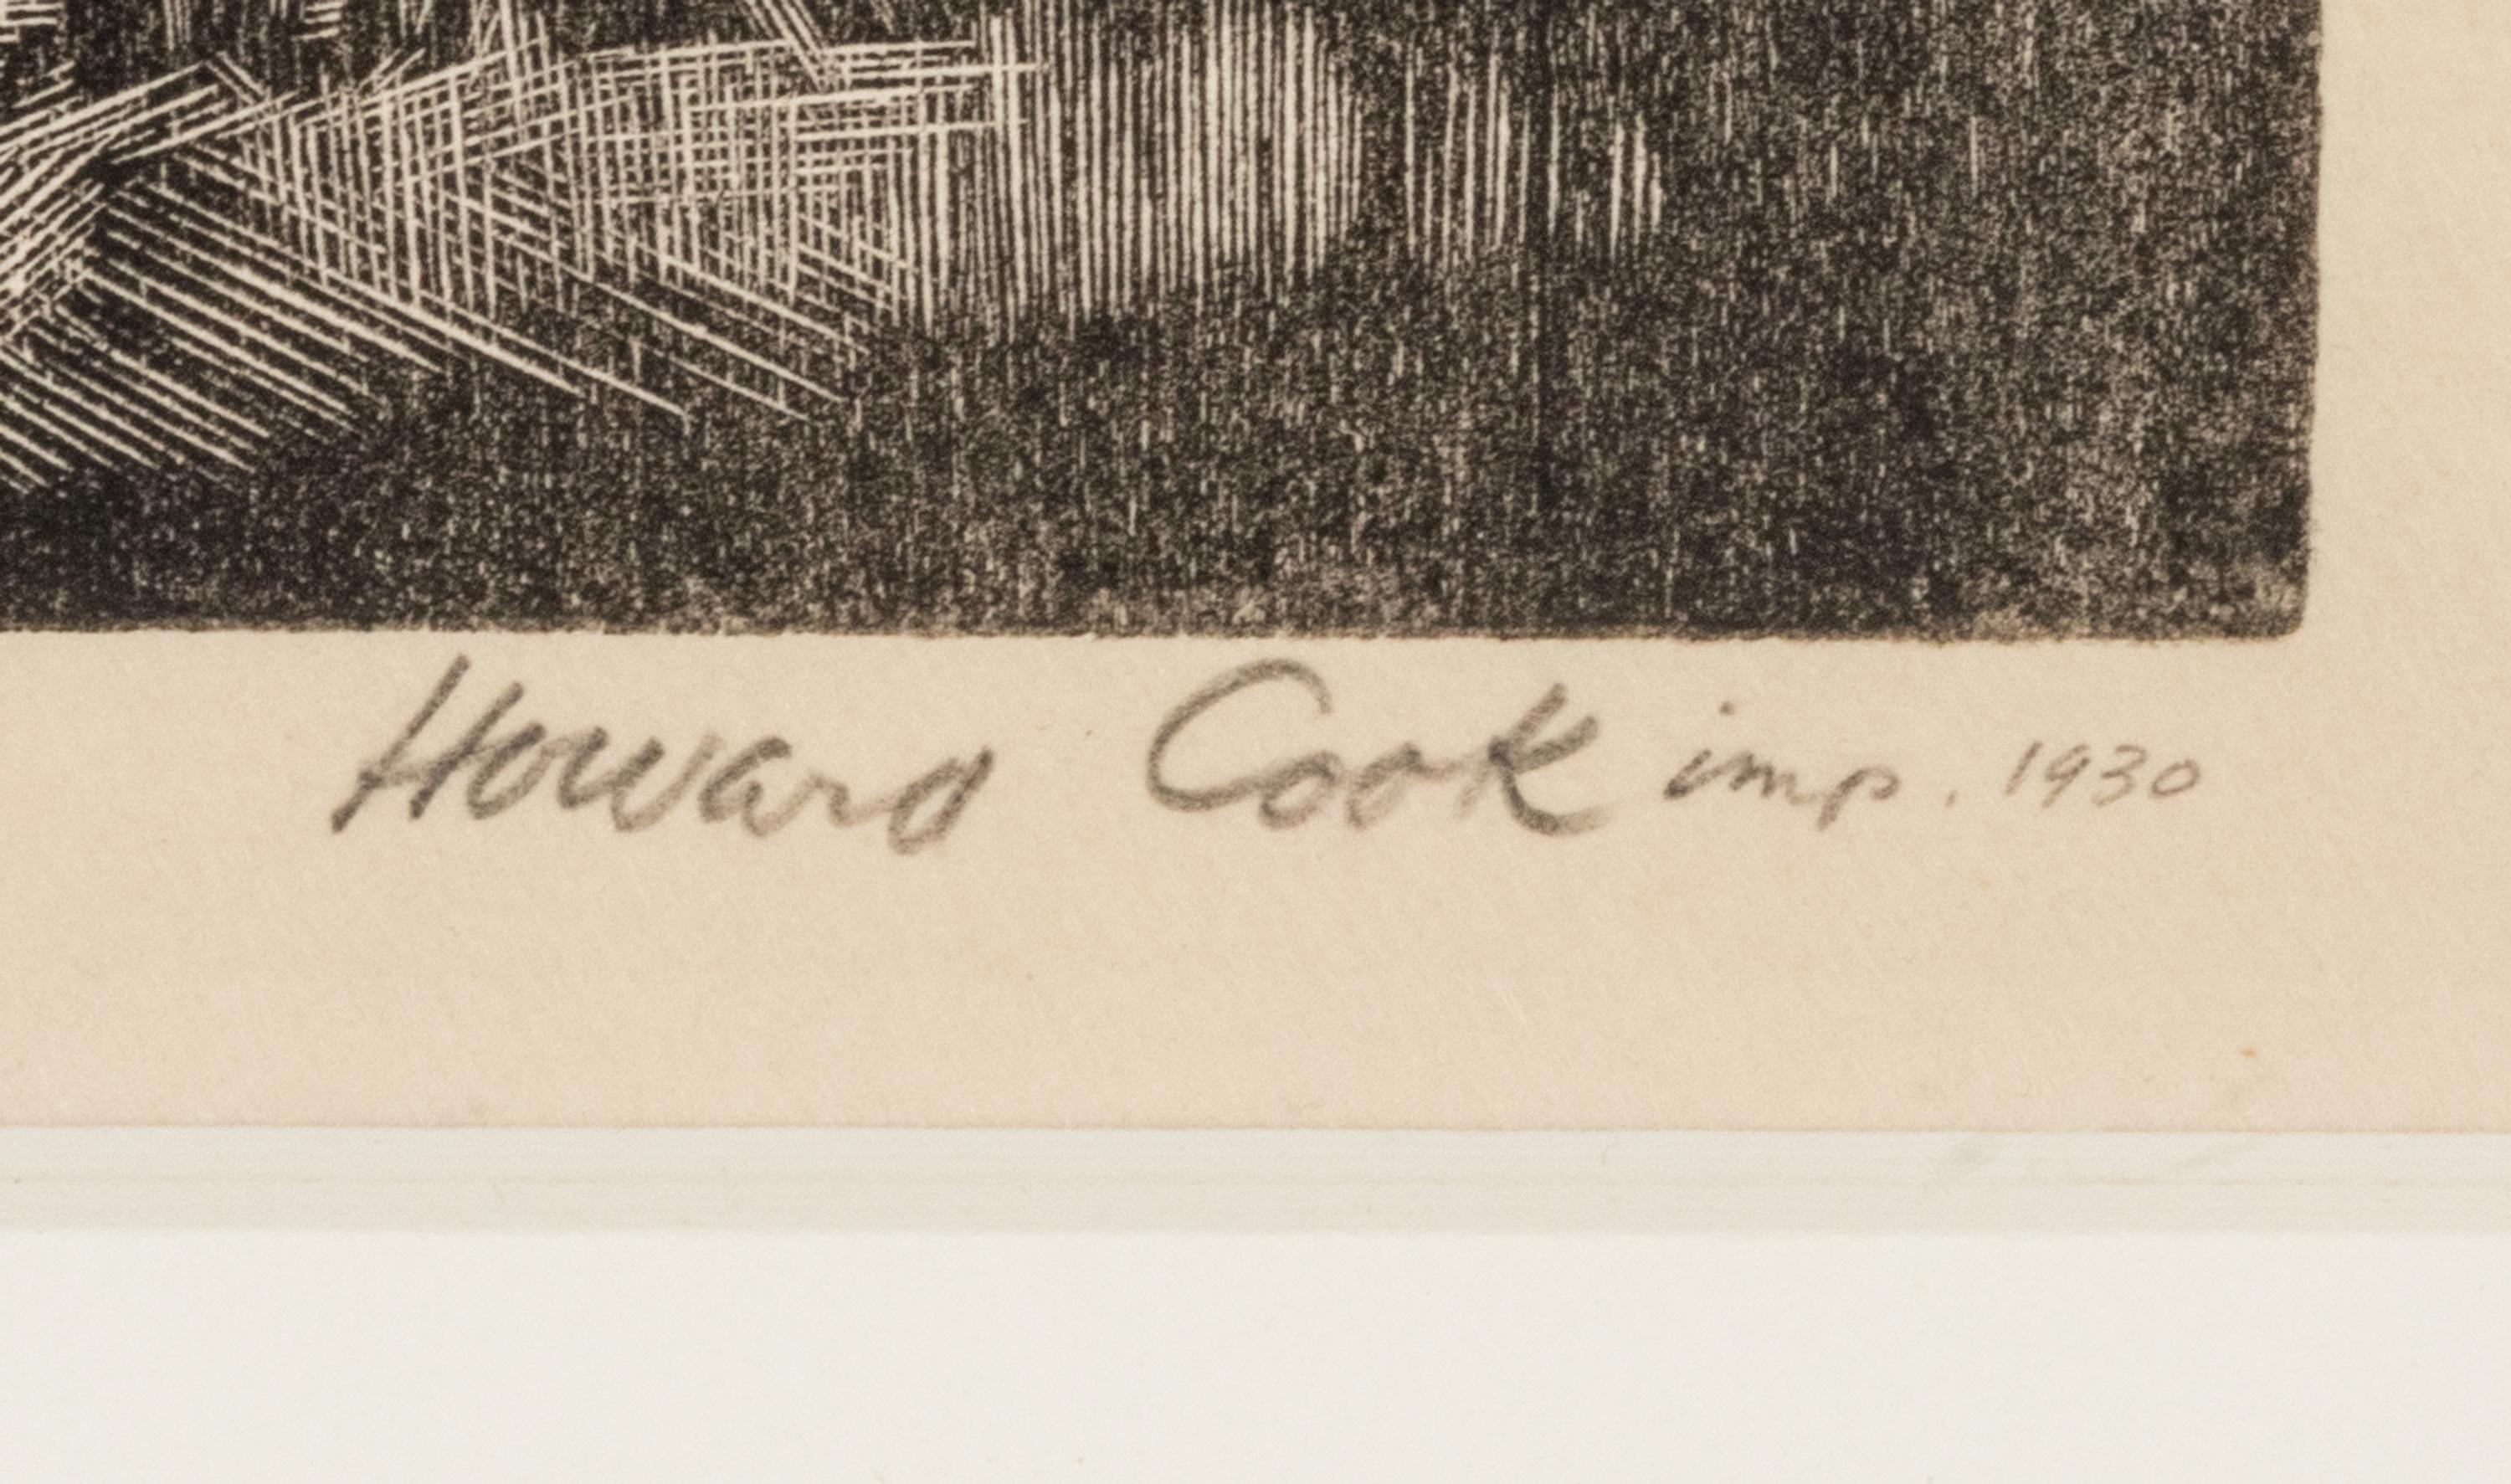 Howard Cook imp. 1930